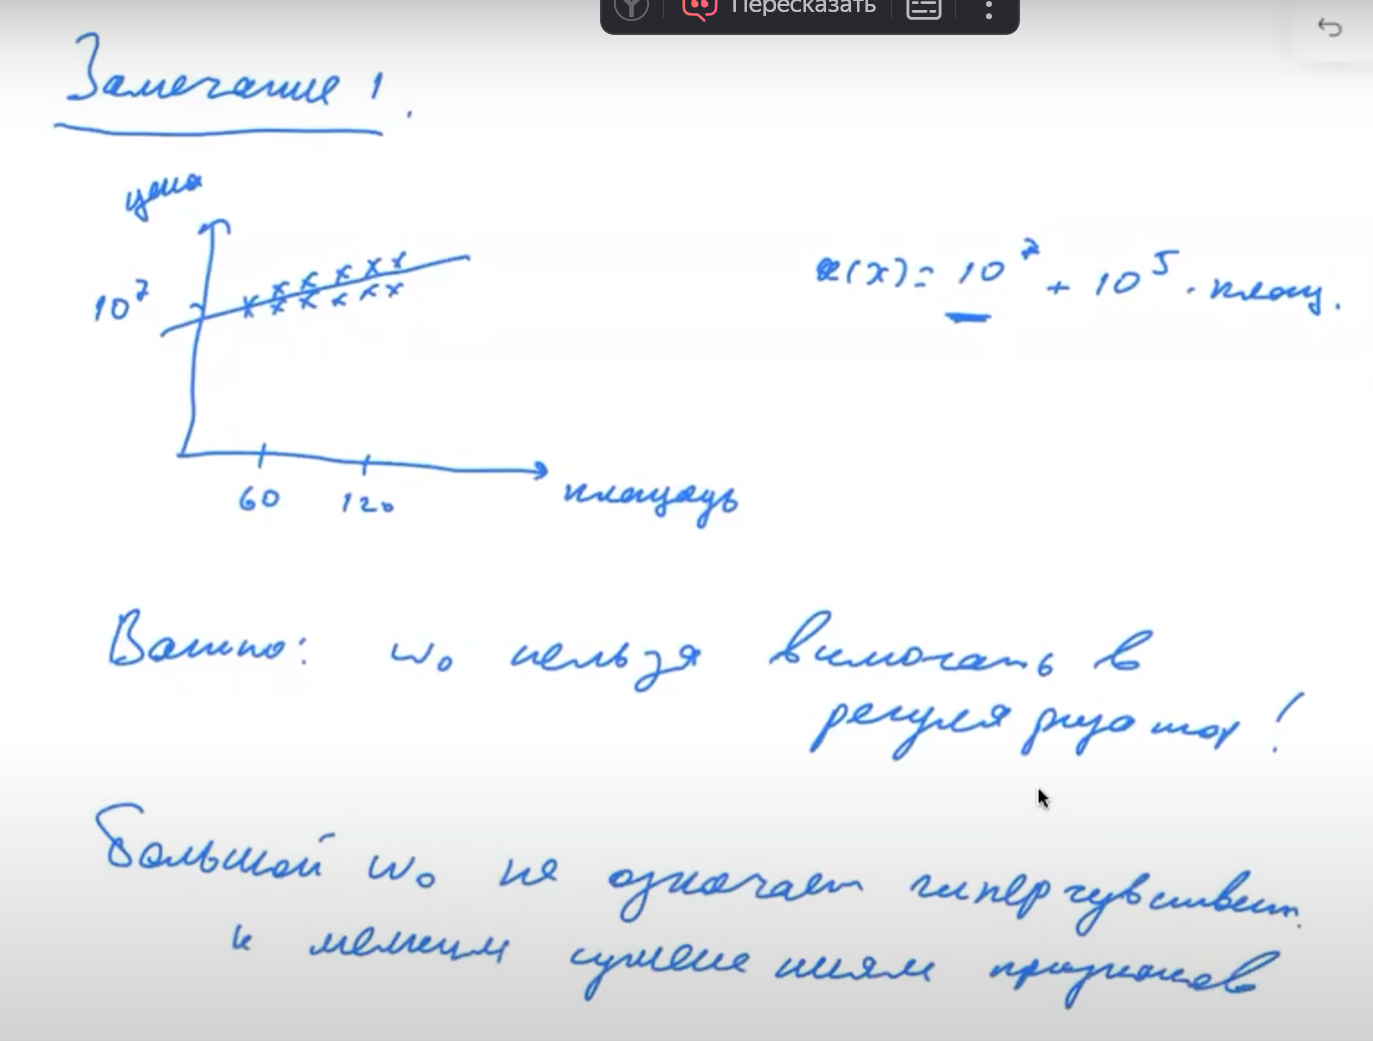 Пересказать
Замечание 1.
цена
10⁷
a(x) = 10⁷ + 10⁵ · площ.
60 120
площадь
Важно: w₀ нельзя включать в
регуляризатор!
Большой w₀ не означает гиперчувствит.
к мелким изменениям признаков